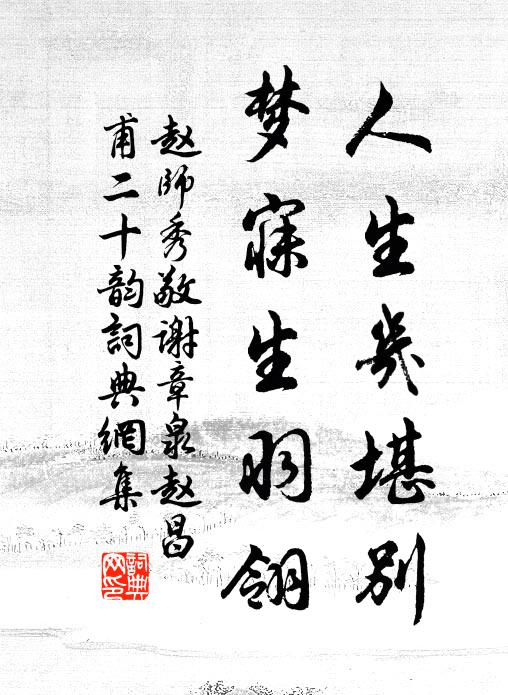 人生幾堪别
梦寐生羽翎
赵師秀敬谢章泉赵昌
甫二十韵詞典網集
詞典网印